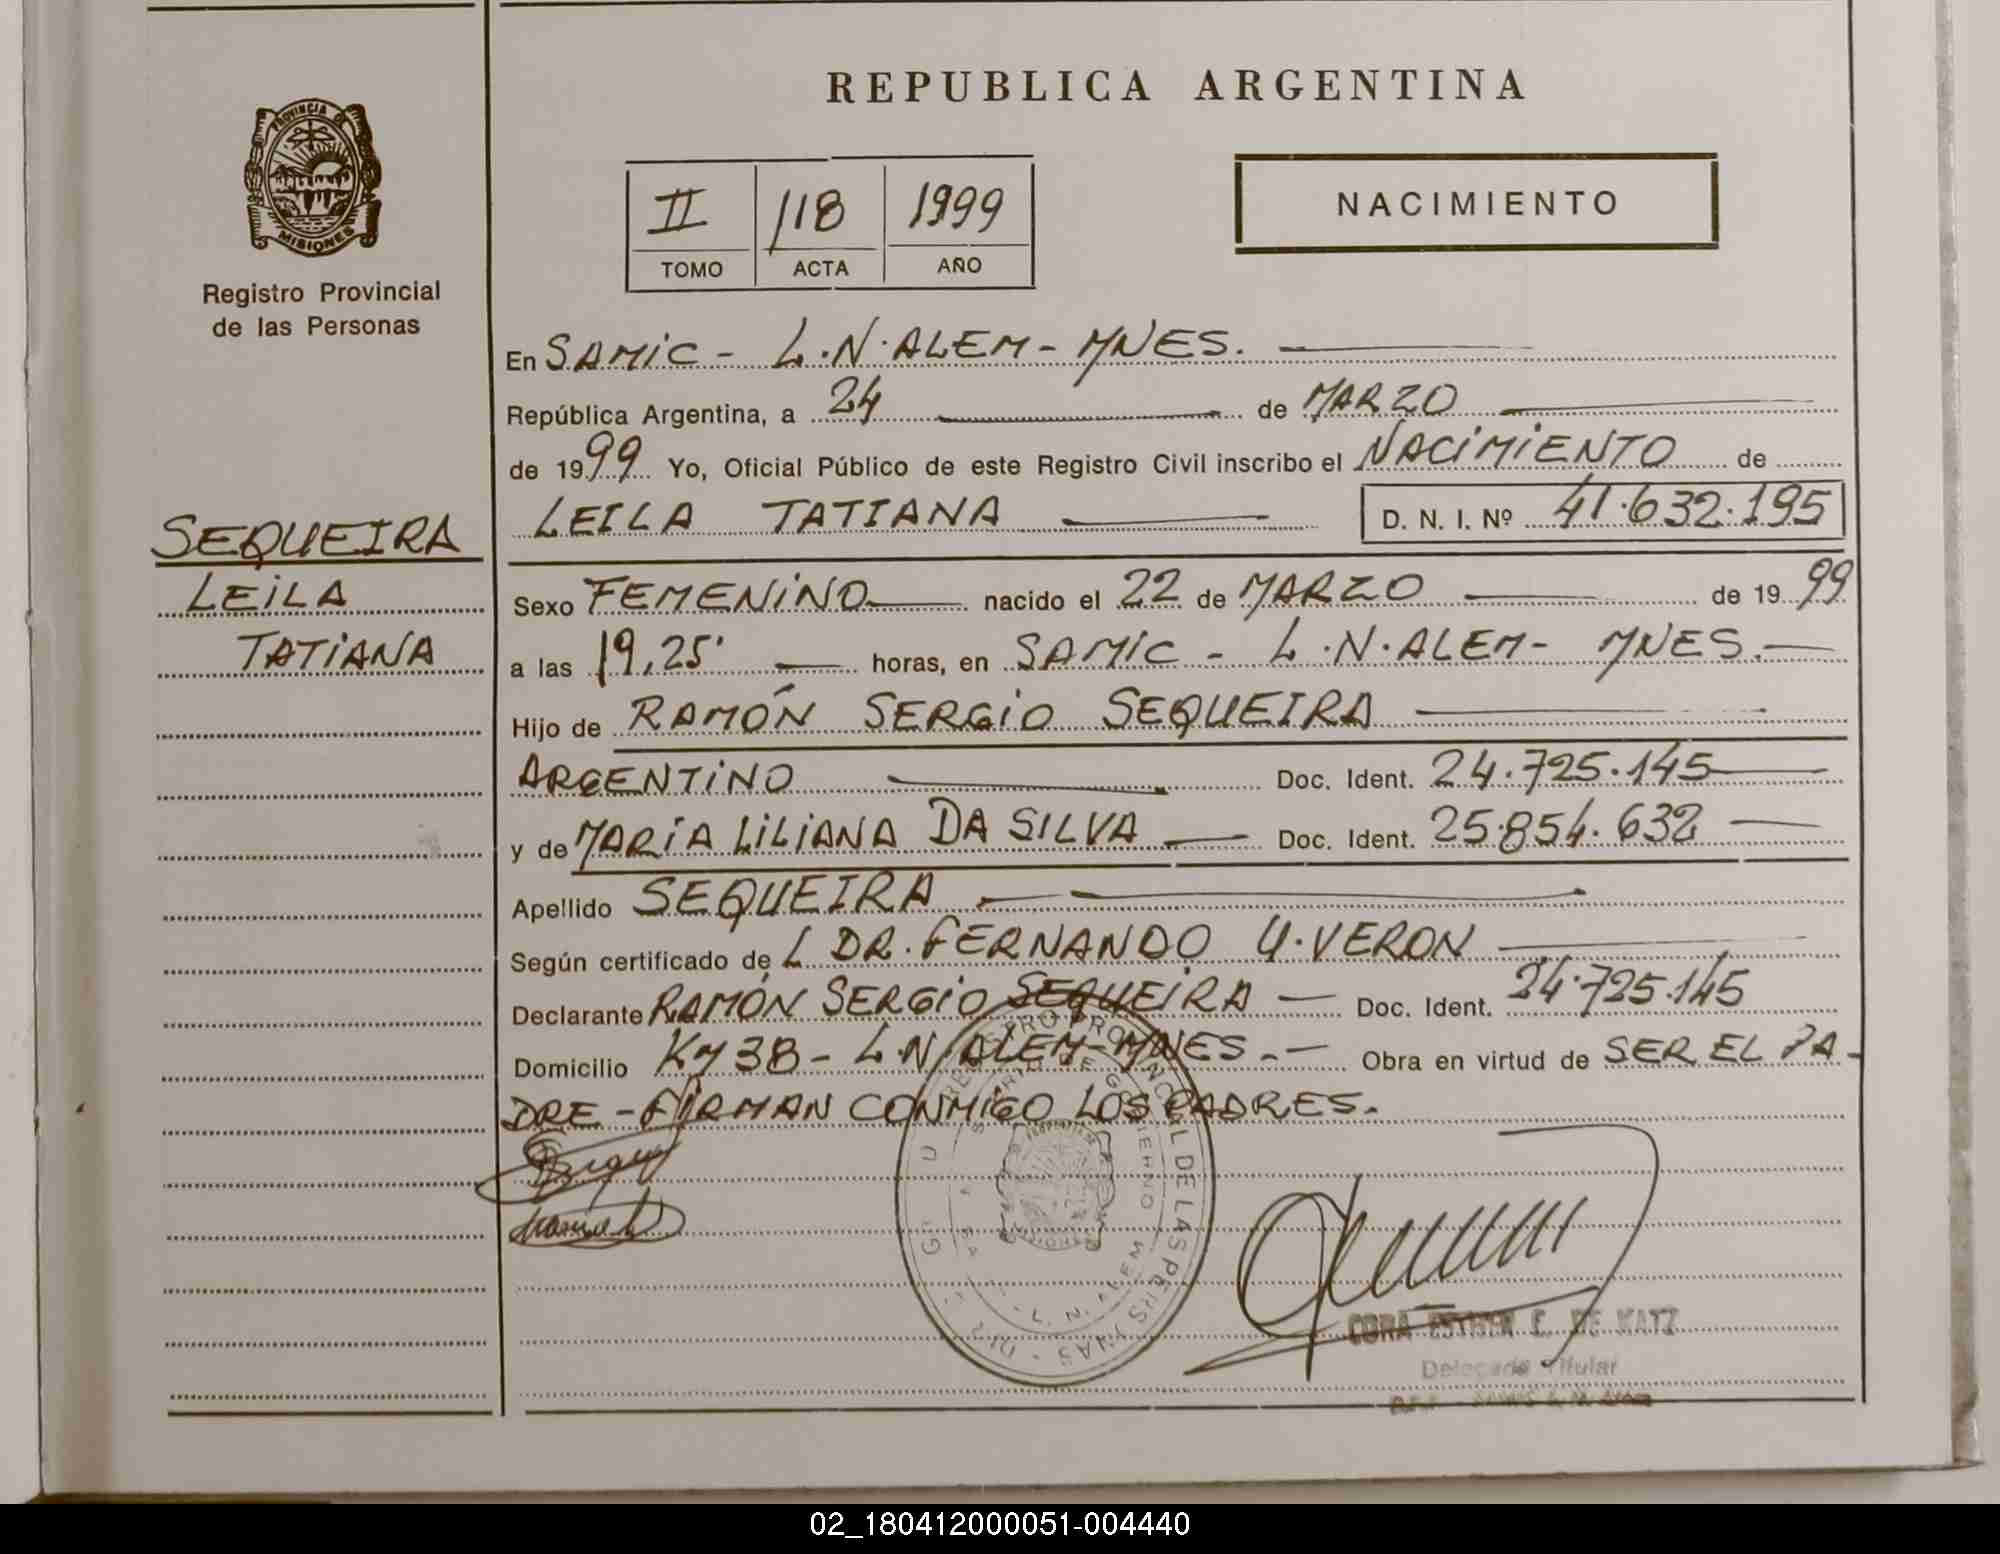 REPUBLICA ARGENTINA
PROVINCIA DE
MISIONES
Registro Provincial
de las Personas
II 118 1999
TOMO ACTA AÑO
NACIMIENTO
En SAMIC - L.N.ALEM - MNES.
República Argentina, a 24 de MARZO
de 1999 Yo, Oficial Público de este Registro Civil inscribo el NACIMIENTO de
LEILA TATIANA D. N. I. Nº 41.632.195
SEQUEIRA
LEILA
TATIANA
Sexo FEMENINO nacido el 22 de MARZO de 1999
a las 19,25' horas, en SAMIC - L.N.ALEM - MNES.
Hijo de RAMÓN SERGIO SEQUEIRA
ARGENTINO Doc. Ident. 24.725.145
y de MARIA LILIANA DA SILVA Doc. Ident. 25.854.632
Apellido SEQUEIRA
Según certificado de L DR. FERNANDO U. VERON
Declarante RAMÓN SERGIO SEQUEIRA Doc. Ident. 24.725.145
Domicilio KM 38 - L.N. ALEM - MNES. Obra en virtud de SER EL PA-
DRE - FIRMAN CONMIGO LOS PADRES.
REGISTRO PROVINCIAL DE LAS PERSONAS
CORA ESTHER E. DE KATZ
Delegada Titular
02_180412000051-004440